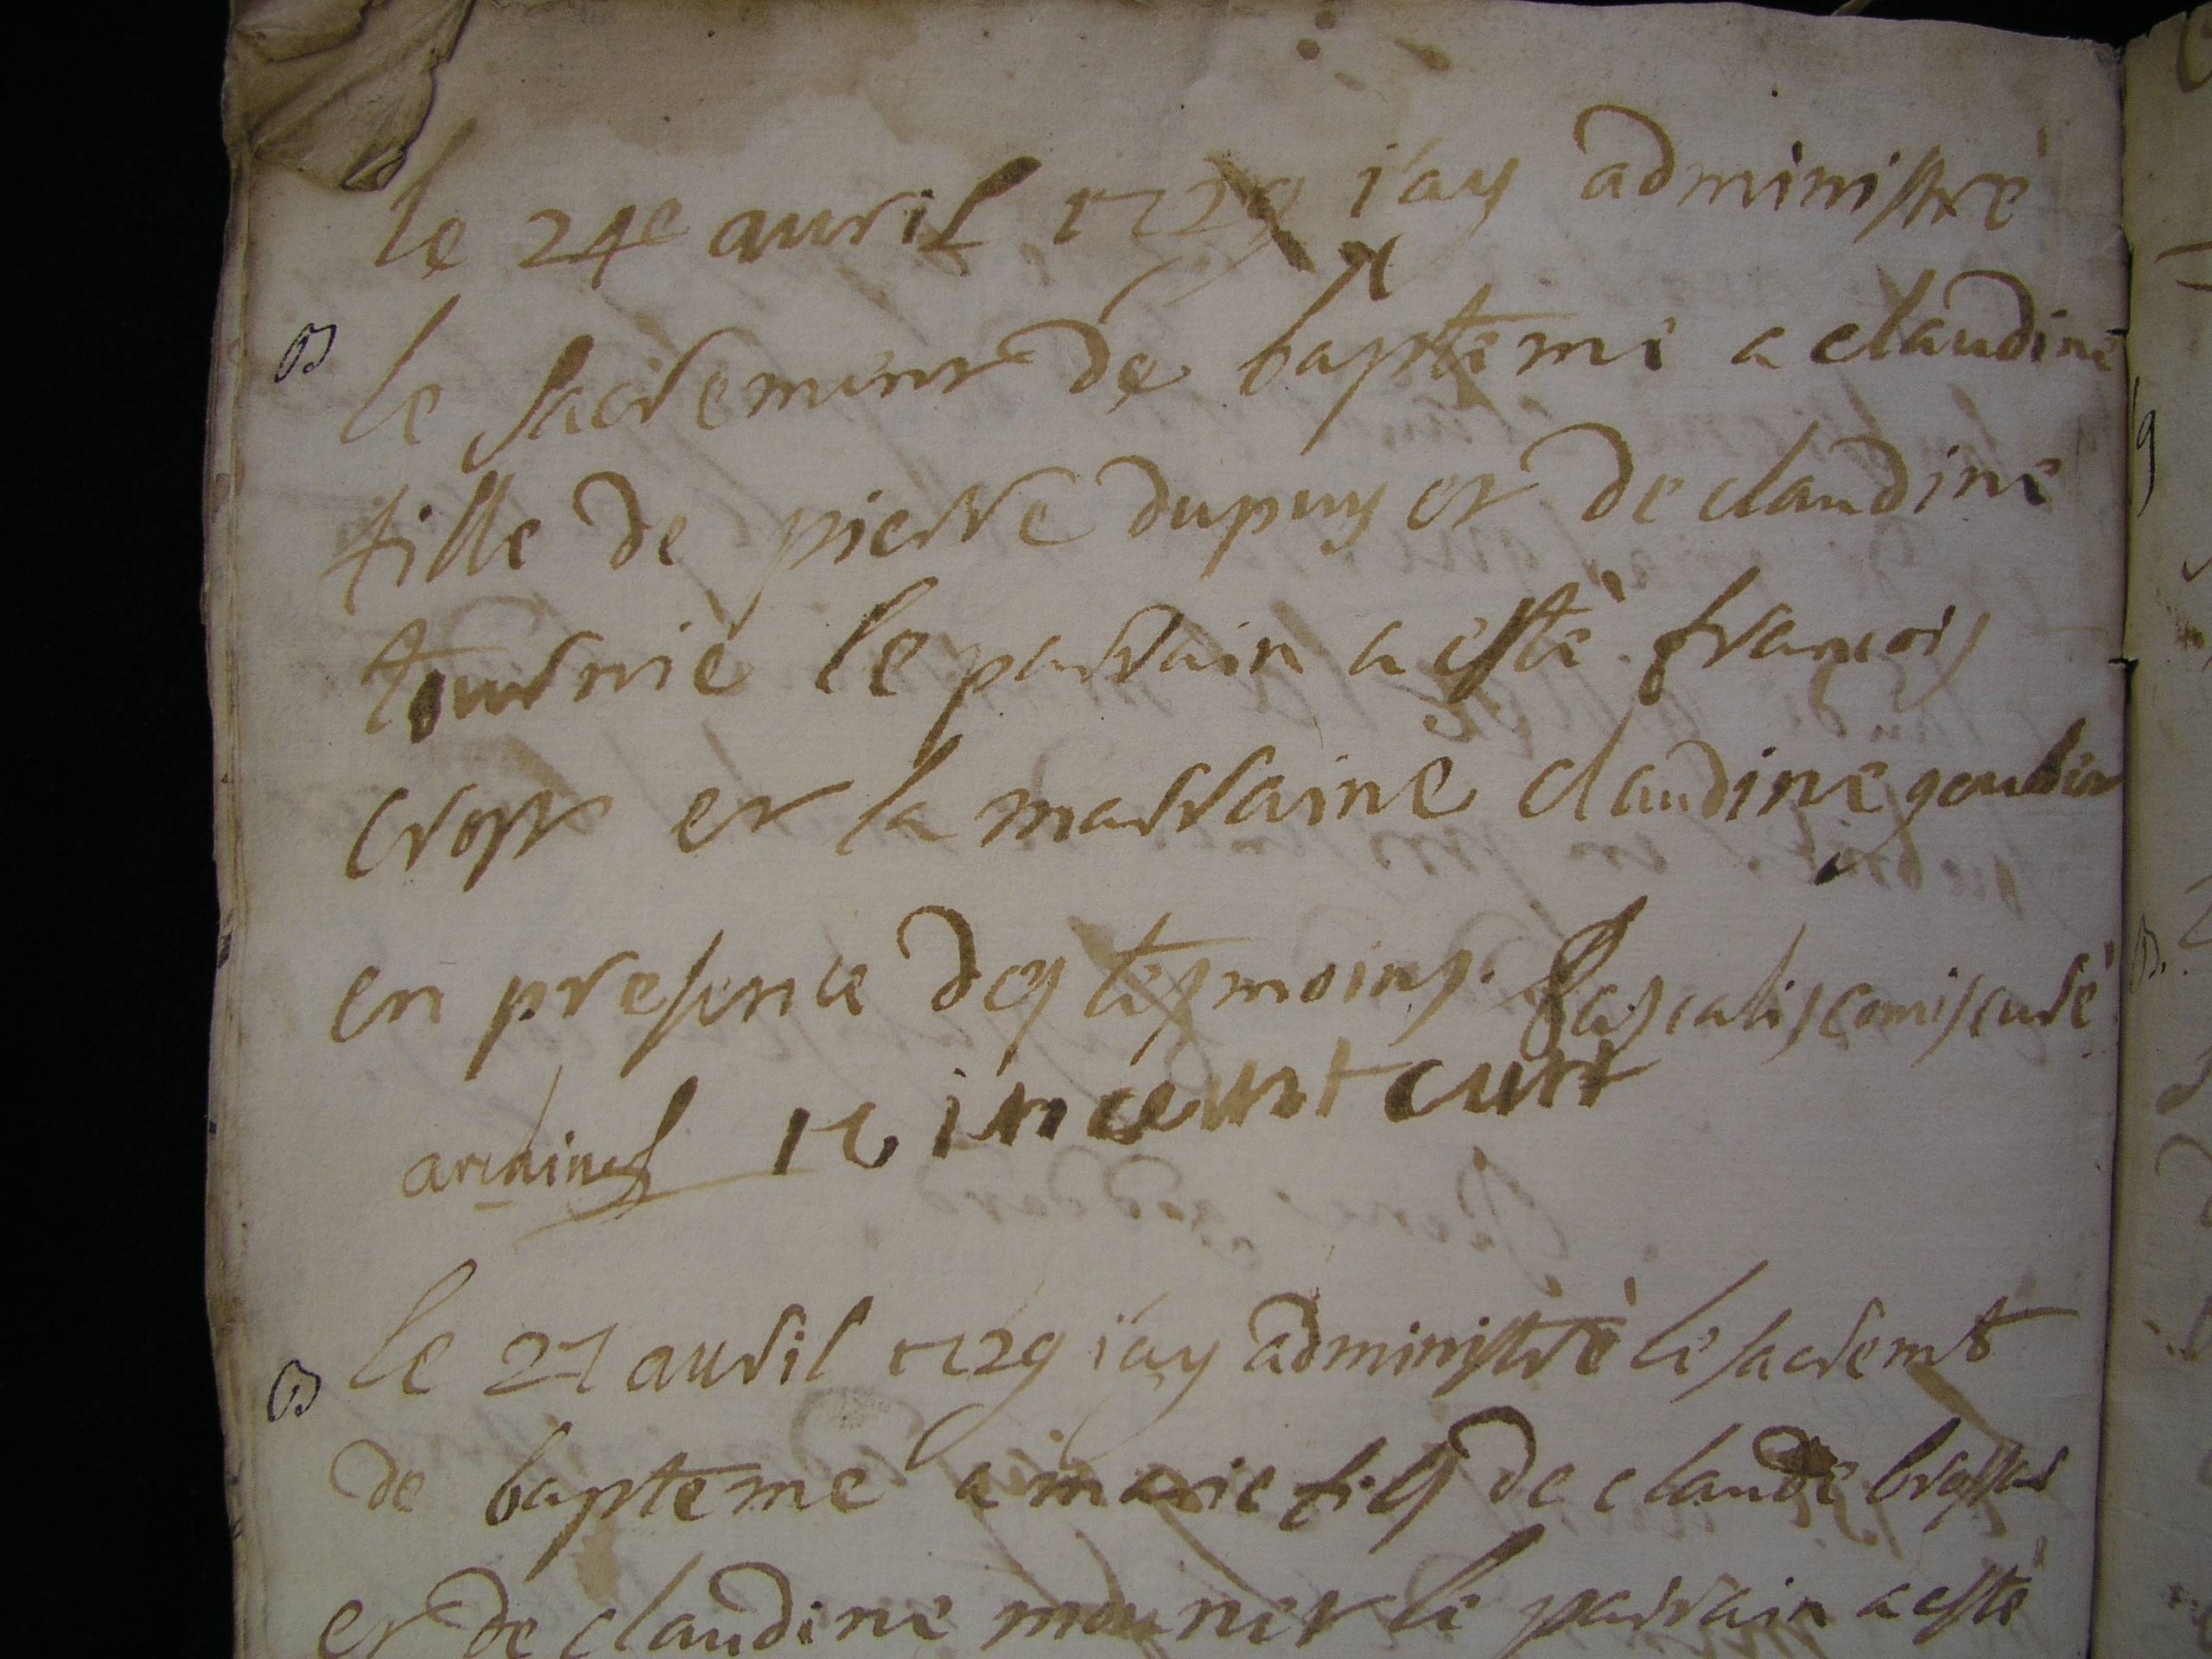 le 24e avril 1729 j'ay administré
B le sacrement de bapteme a claudine
fille de pierre dupuy et de claudine
tournié le parrain a esté francois
crosr et la marraine claudine goudier
en presence des tesmoins. Pascalis comis curé
archinef vincent curt
B le 27 avril 1729 j'ay administré le sacremt
de bapteme a marie fille de claude brossar
et de claudine mounier le parrain a esté